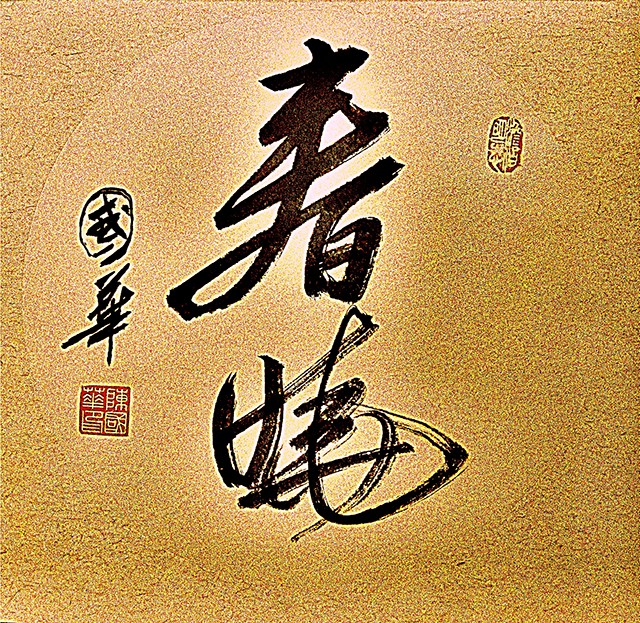 春晓
國華
陳國華印